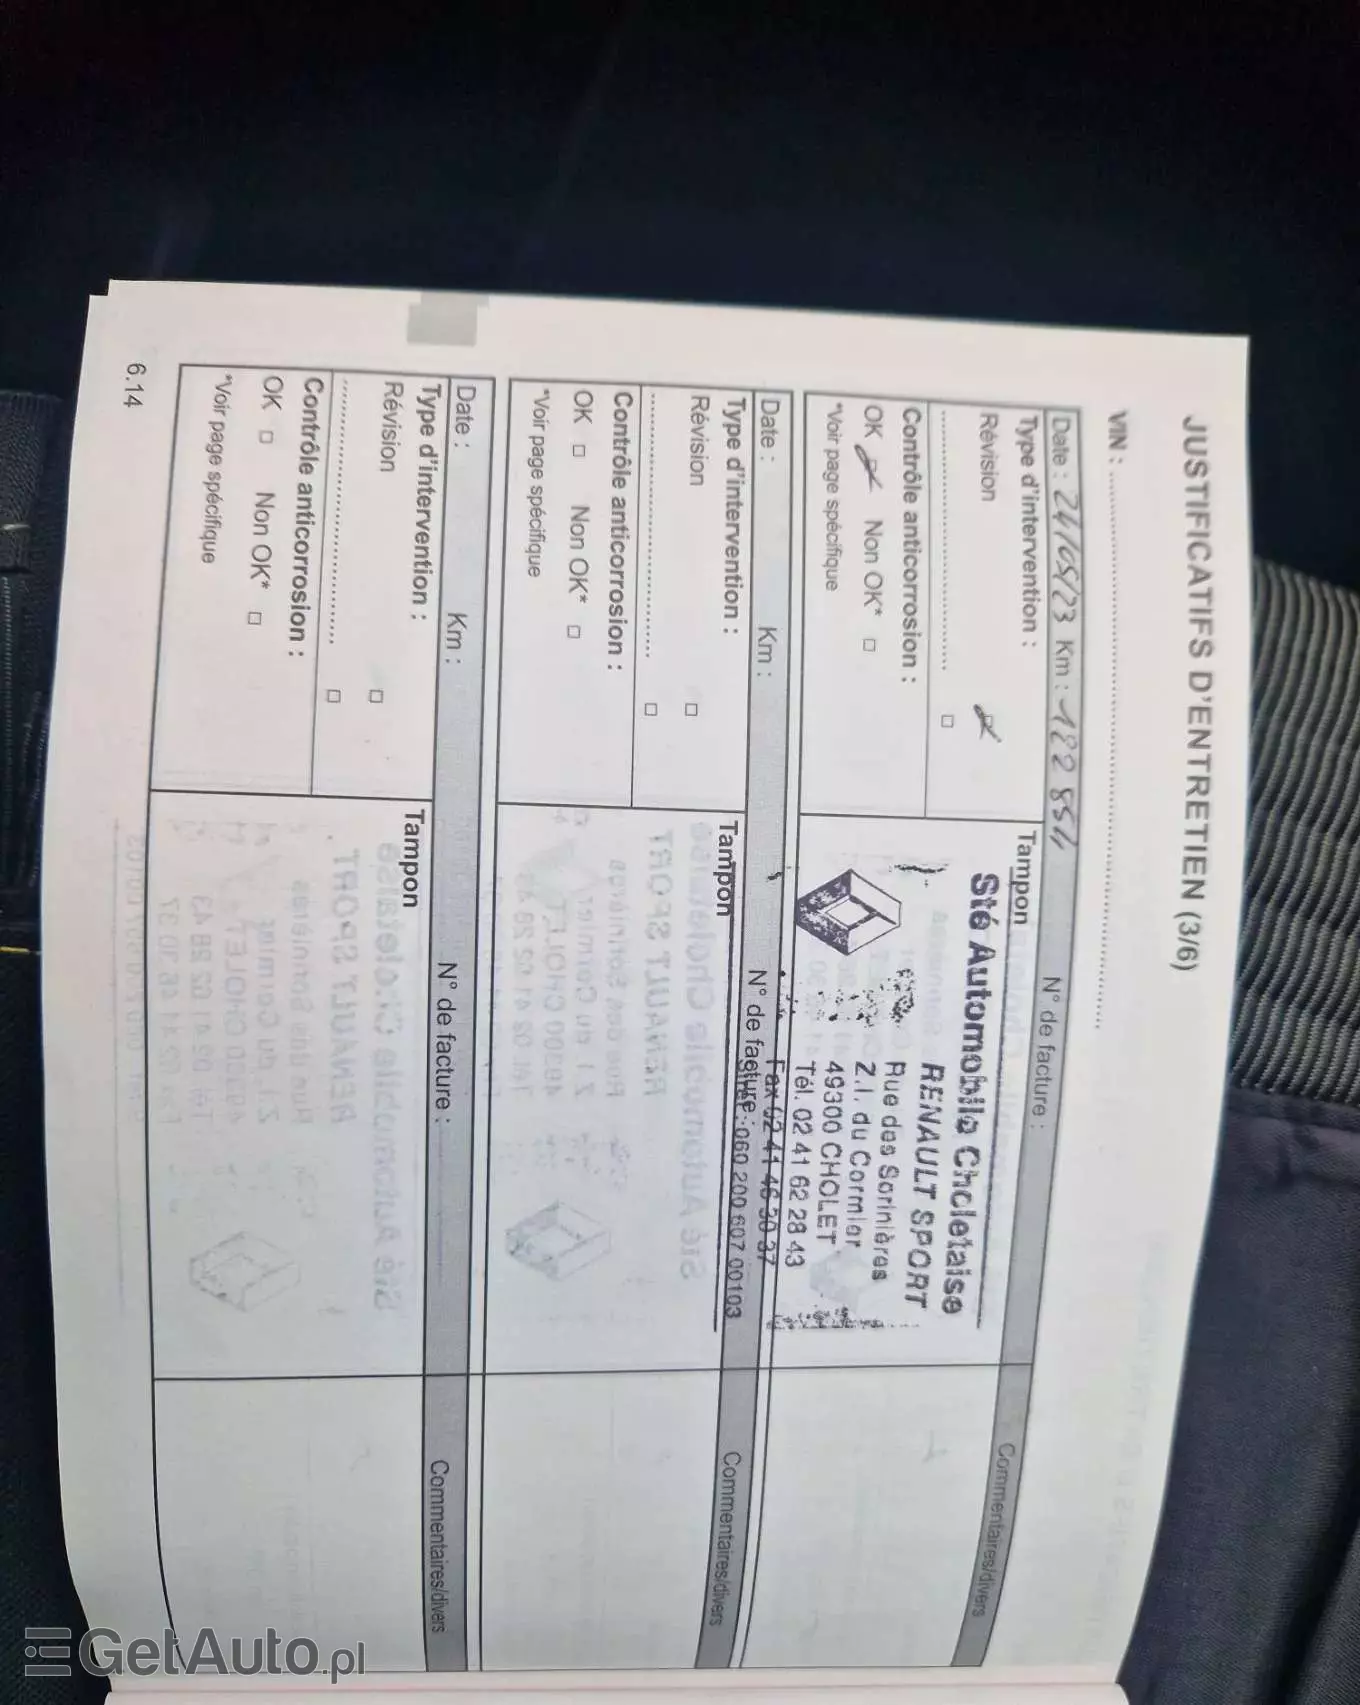 JUSTIFICATIFS D'ENTRETIEN (3/6)
VIN : ....................................................
Date : 24/05/23 Km : 122 854 N° de facture : Commentaires/divers
Type d'intervention : Tampon
Révision
Contrôle anticorrosion :
OK Non OK* □
*Voir page spécifique
Sté Automobile Choletaise
RENAULT SPORT
Rue des Sorinières
Z.I. du Cormier
49300 CHOLET
Tél. 02 41 62 28 43
Fax 02 41 46 30 37
060 200 607 00103
Date : Km : N° de facture : Commentaires/divers
Type d'intervention : Tampon
Révision □
.................................... □
Contrôle anticorrosion :
OK □ Non OK* □
*Voir page spécifique
Date : Km : N° de facture : Commentaires/divers
Type d'intervention : Tampon
Révision □
.................................... □
Contrôle anticorrosion :
OK □ Non OK* □
*Voir page spécifique
6.14
GetAuto.pl